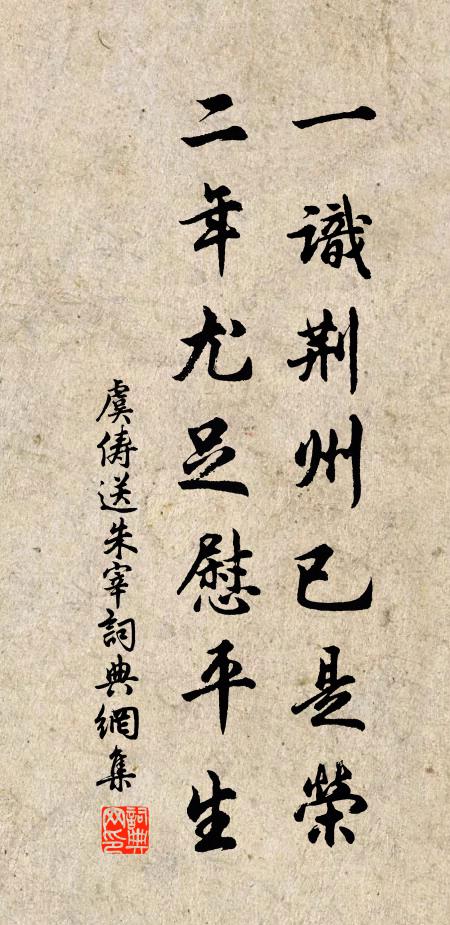 一識荆州已是榮
二年尤足慰平生
虞儔送朱宰詞典網集
詞典網印